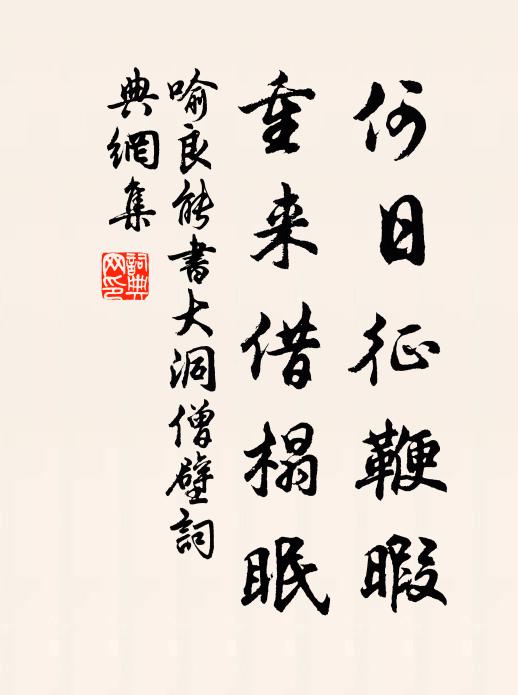 何日征鞭暇
重来借榻眠
喻良能書大洞僧壁詞
典網集
詞典网印